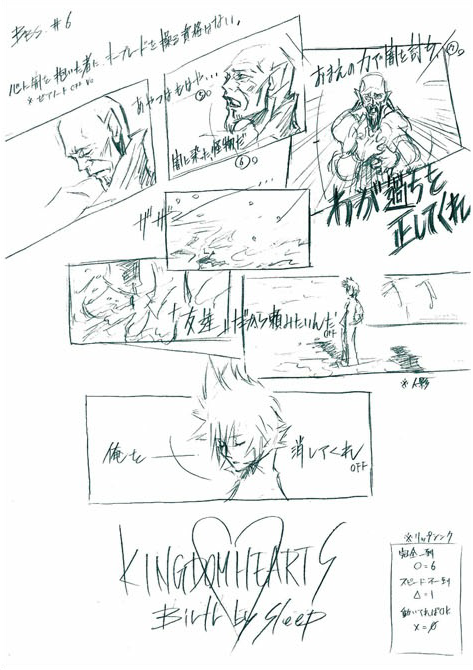 BbS. #6
心に闇を抱いた者に、キーブレードを操る資格はない。
あやつはもはや...
⑤
闇に染った怪物だ
⑥
おまえの力で闇を討ち、
わが過ちを
正してくれ
ザザ....
「友達」だから頼みたいんだ
OFF
※人影
俺を
消してくれ
OFF
KINGDOM HEARTS
Birth by Sleep
※リップシンク
完全一致
○=6
△=1
動いてればOK
X=0